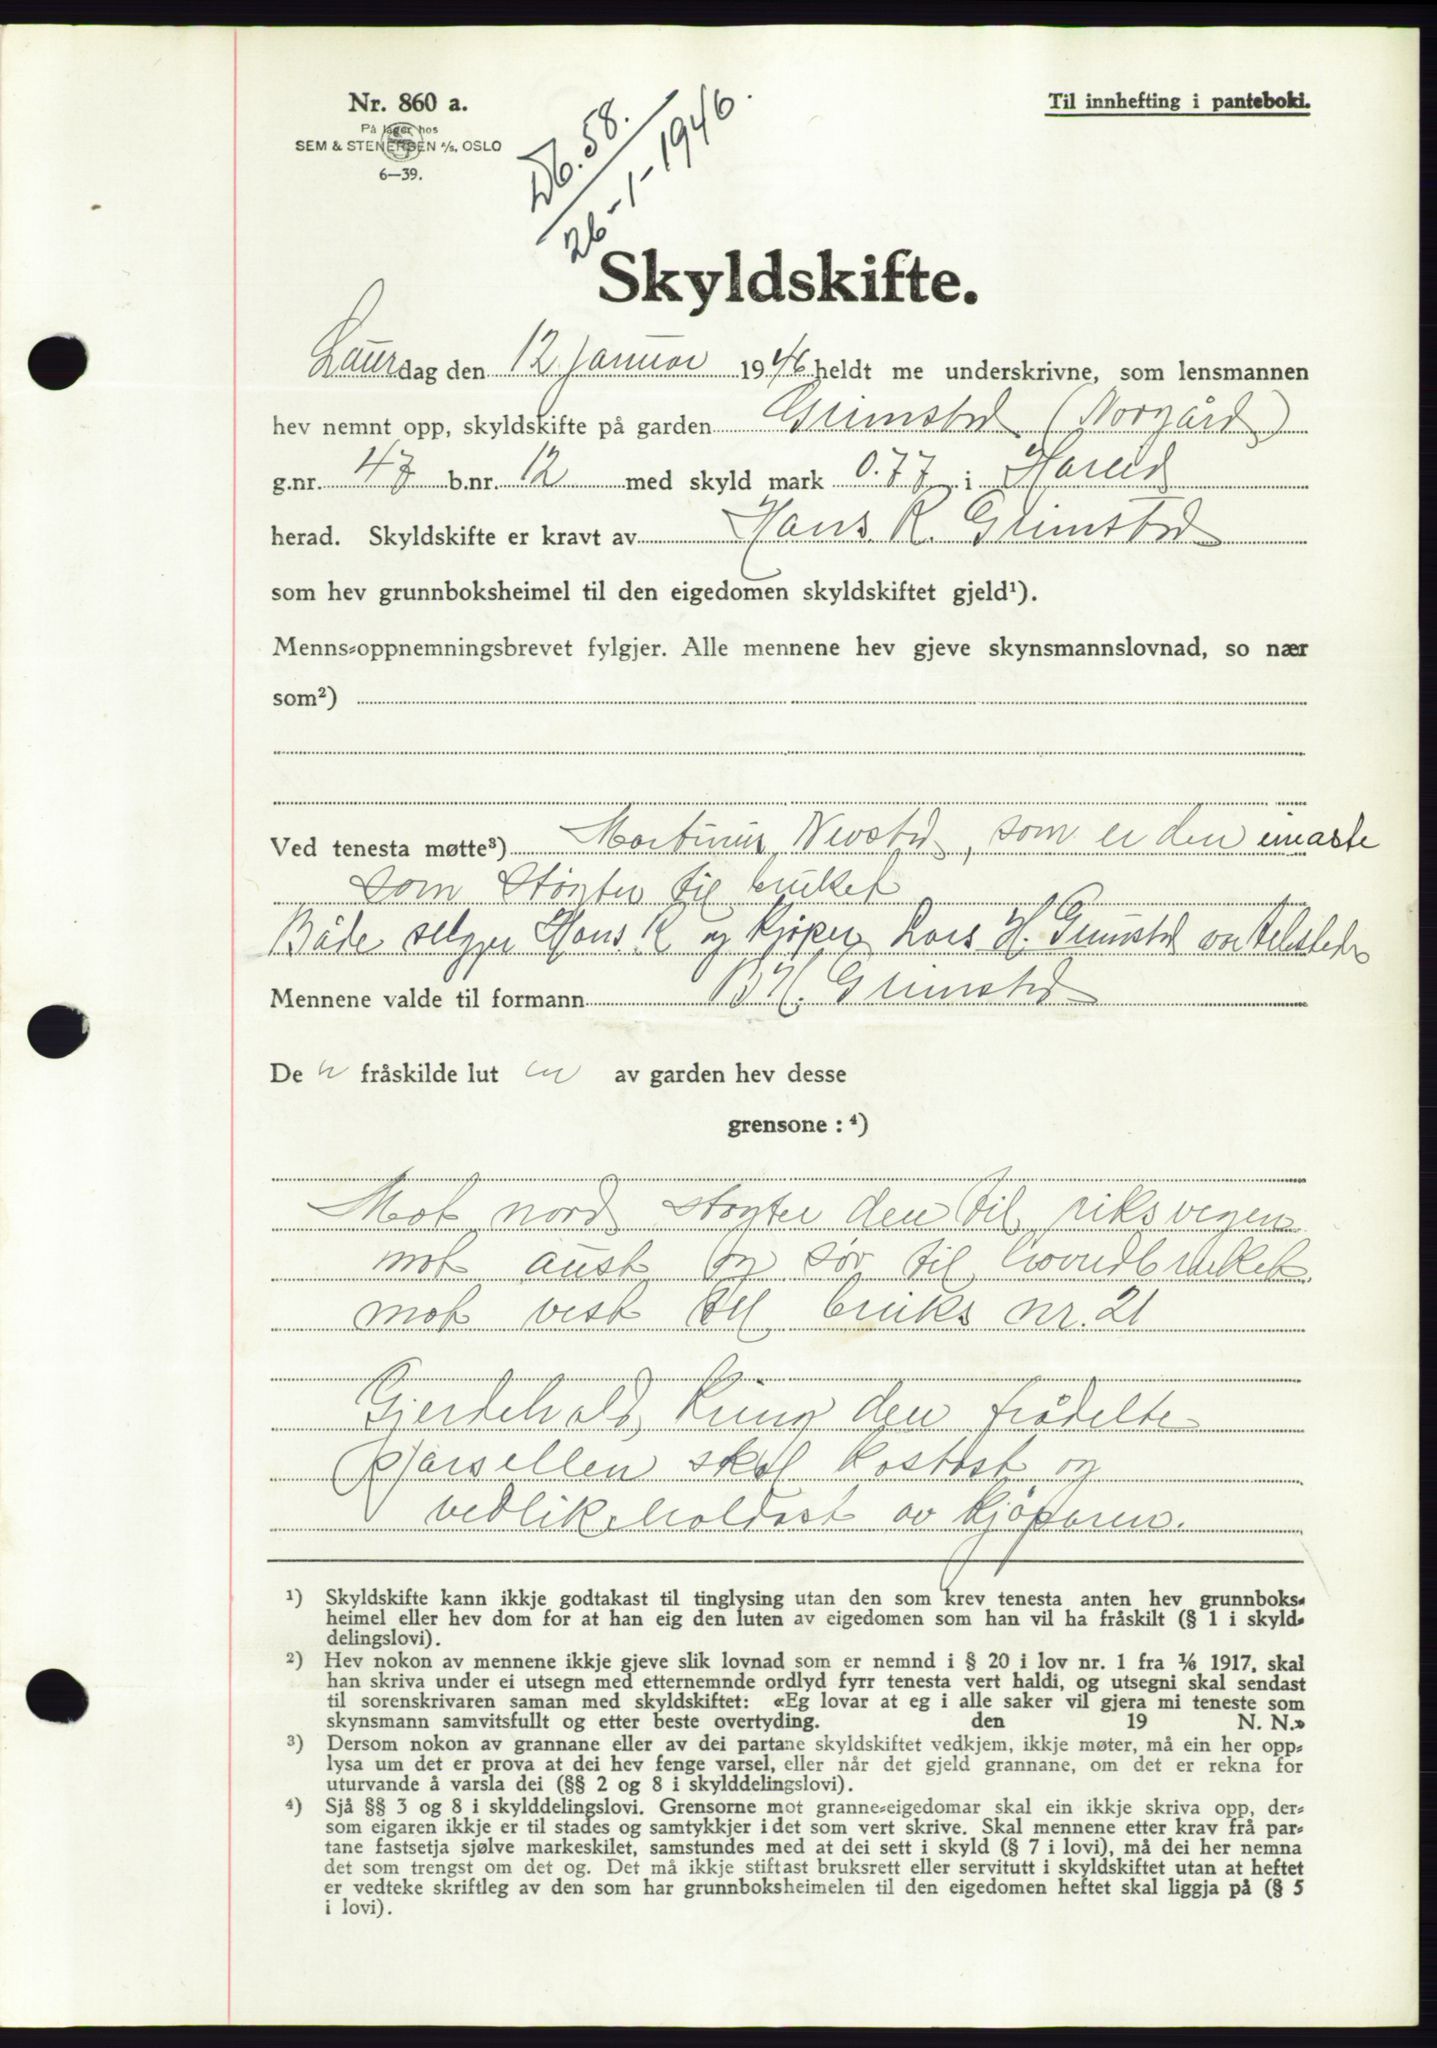 Nr. 860 a.
På lager hos
SEM & STENERSEN A/S, OSLO
6—39.
Db. 58.
26-1-1946.
Til innhefting i panteboki.
Skyldskifte.
Laurdag den 12 januar 1946 heldt me underskrivne, som lensmannen
hev nemnt opp, skyldskifte på garden Grimstad (Norgård)
g.nr. 47 b.nr. 12 med skyld mark 0.77 i Hareid
herad. Skyldskifte er kravt av Hans R. Grimstad
som hev grunnboksheimel til den eigedomen skyldskiftet gjeld¹).
Menns-oppnemningsbrevet fylgjer. Alle mennene hev gjeve skynsmannslovnad, so nær
som²)
Ved tenesta møtte³) Martinus Nevstad, som er den einaste
som støyter til bruket
Både seljer Hans R og kjøper Lars H. Grimstad var tilstede
Mennene valde til formann B H. Grimstad
De n fråskilde lut en av garden hev desse
grensone : ⁴)
Mot nord støyter den til riksvegen
mot aust og sør til hovudbruket
mot vest til bruks nr. 21
Gjerdehald kring den frådelte
parsellen skal kostast og
vedlikehaldast av kjøparen.
¹) Skyldskifte kann ikkje godtakast til tinglysing utan den som krev tenesta anten hev grunnboks-
heimel eller hev dom for at han eig den luten av eigedomen som han vil ha fråskilt (§ 1 i skyld-
delingslovi).
²) Hev nokon av mennene ikkje gjeve slik lovnad som er nemnd i § 20 i lov nr. 1 fra ⅙ 1917, skal
han skriva under ei utsegn med etternemnde ordlyd fyrr tenesta vert haldi, og utsegni skal sendast
til sorenskrivaren saman med skyldskiftet: «Eg lovar at eg i alle saker vil gjera mi teneste som
skynsmann samvitsfullt og etter beste overtyding. den 19 N. N.»
³) Dersom nokon av grannane eller av dei partane skyldskiftet vedkjem, ikkje møter, må ein her opp-
lysa um det er prova at dei hev fenge varsel, eller når det gjeld grannane, om det er rekna for
uturvande å varsla dei (§§ 2 og 8 i skylddelingslovi).
⁴) Sjå §§ 3 og 8 i skylddelingslovi. Grensorne mot granne-eigedomar skal ein ikkje skriva opp, der-
som eigaren ikkje er til stades og samtykkjer i det som vert skrive. Skal mennene etter krav frå par-
tane fastsetja sjølve markeskilet, samstundes med at dei sett i skyld (§ 7 i lovi), må dei her nemna
det som trengst om det og. Det må ikkje stiftast bruksrett eller servitutt i skyldskiftet utan at heftet
er vedteke skriftleg av den som har grunnboksheimelen til den eigedomen heftet skal liggja på (§ 5
i lovi).